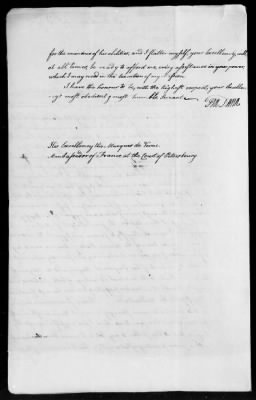 for the exertions of his abilities, and I flatter myself, your Excellency, will
at all times, be ready to afford me, every assistance in your power,
which I may need in the execution of my Mission
I have the honour to be, with the highest respect, your Excellen-
cy's most obedient & most humble Servant
FRA DANA
His Excellency the Marquis de Verac
Ambassador of France at the Court of Petersbourg